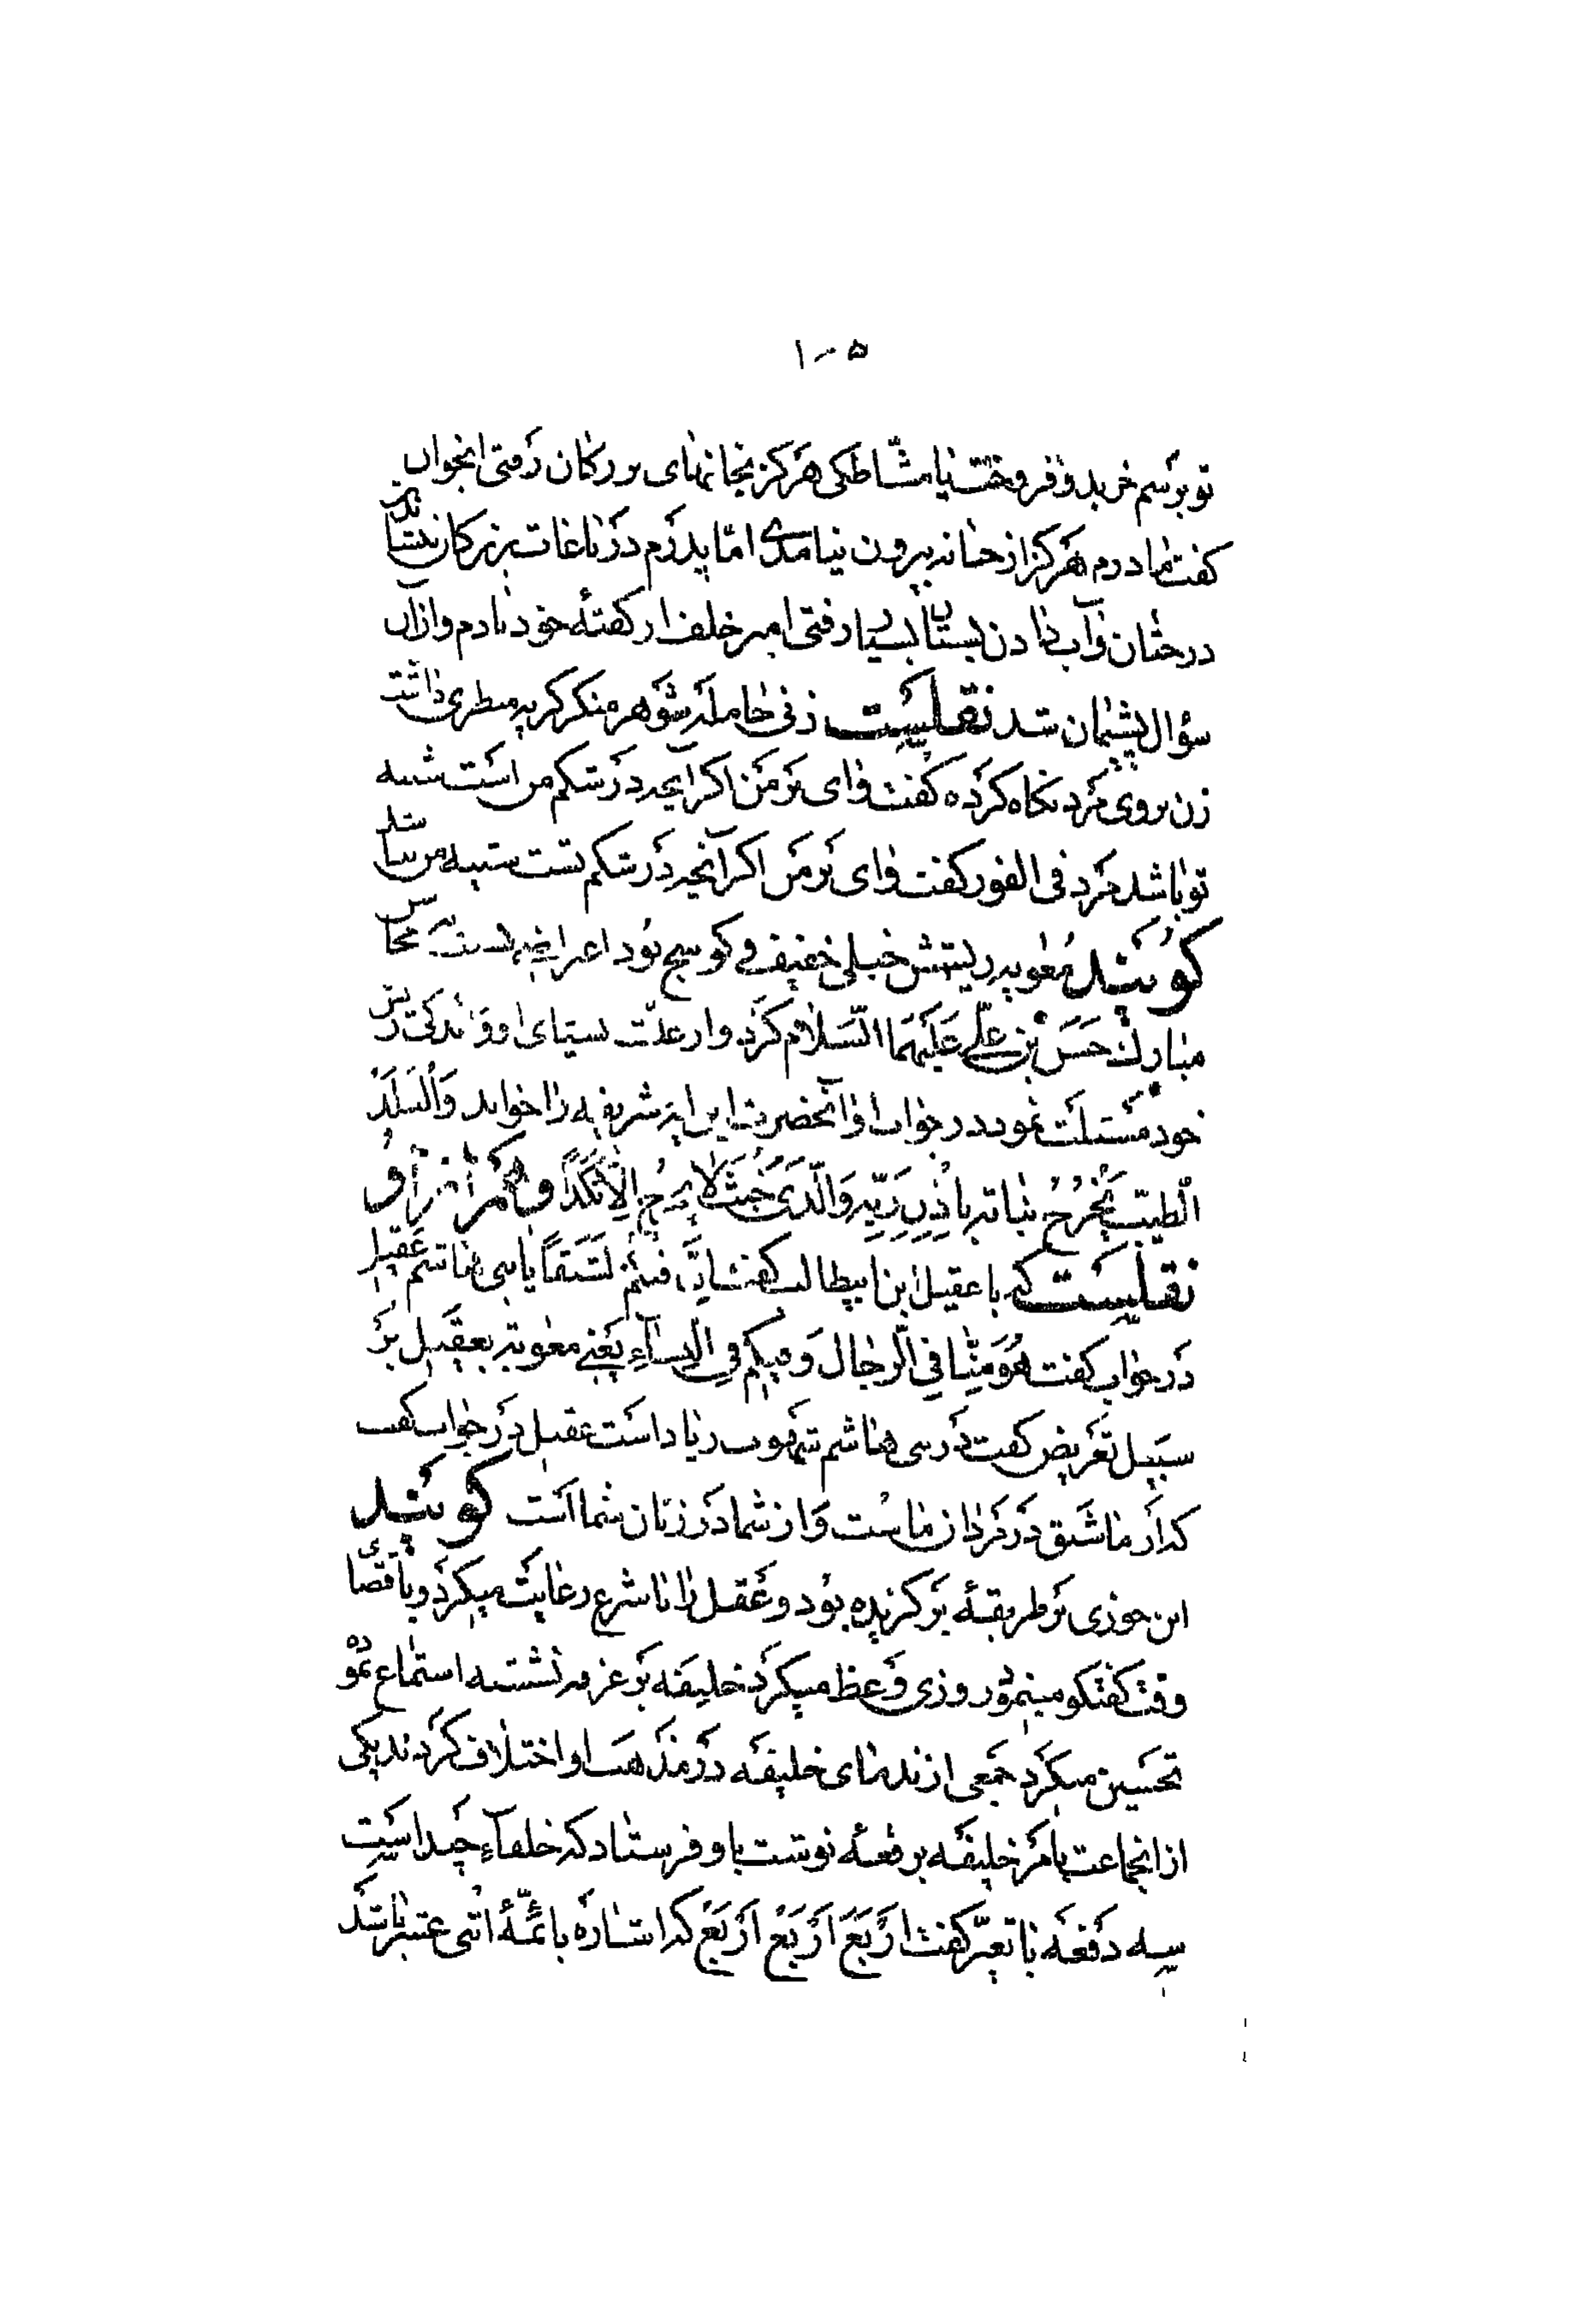 ۱۰۵
تو برسم خرید و فروخت یا مشاطکی هرکز بخانهای بزرکان رفتی انجوان
کفت مادرم هرکز از خانه بیرون نیامدی اما پدرم در باغات بزرکان بنشاندن
درختان و آب دادن بستان بسیار رفتی امیر خلف از کفتهٔ خود نادم و از آن
سؤال پشیمان شد نقلست زنی حامله شوهر منکر کریه منظری داشت
زن بروی مرد نکاه کرده کفت وای بر من اکر آنچه در شکم من است شبیه
تو باشد مرد فی الفور کفت وای بر من اکر آنچه در شکم تست شبیه من نباشد
کویند معویه ریشش خیلی خفیف و کوسج بود اعراضیه بمحاسن
مبارک حسن بن علی علیهما السلام کرد و از علت بسیاری او و اندکی ریش
خود مسئلت نمود در جواب او آنحضرت این ایه شریفه را خواند وَالْبَلَدُ
الطَّیِّبُ یَخْرُجُ نَباتُهُ بِاِذْنِ رَبِّهِ وَالَّذی خَبُثَ لا یَخْرُجُ اِلّا نَکِداً و هم از او
نقلست که با عقیل ابن ابیطالب کفت اِنَّ فیکُم لَشَبَقاً یا بنی هاشم عقیل
در جواب کفت هُوَ مِنّا فِی الرِّجال وَ فیکُم فِی النِّساءِ یعنی معویه بعقیل بر
سبیل تعریض کفت در بنی هاشم شهوت زیاد است عقیل در جواب کفت
که از ما شبق در مردان ماست و از شما در زنان شما است کویند
ابن جوزی بر طریقهٔ برکزیده بود و عقل را با شرع رعایت میکرد و باقتضای
وقت کفتکو مینمود روزی وعظ میکرد خلیفه بر غرفه نشسته استماع نموده
تحسین میکرد جمعی از ندمای خلیفه در مذهب او اختلاف کردند یکی
از انجماعت بامر خلیفه برقعهٔ نوشت باو فرستاد که خلفآء چند است
سه دفعه با تعیّر کفت اَرْبَعْ اَرْبَعْ اَرْبَعْ که اشاره بائمّهٔ اثنی عشر باشد